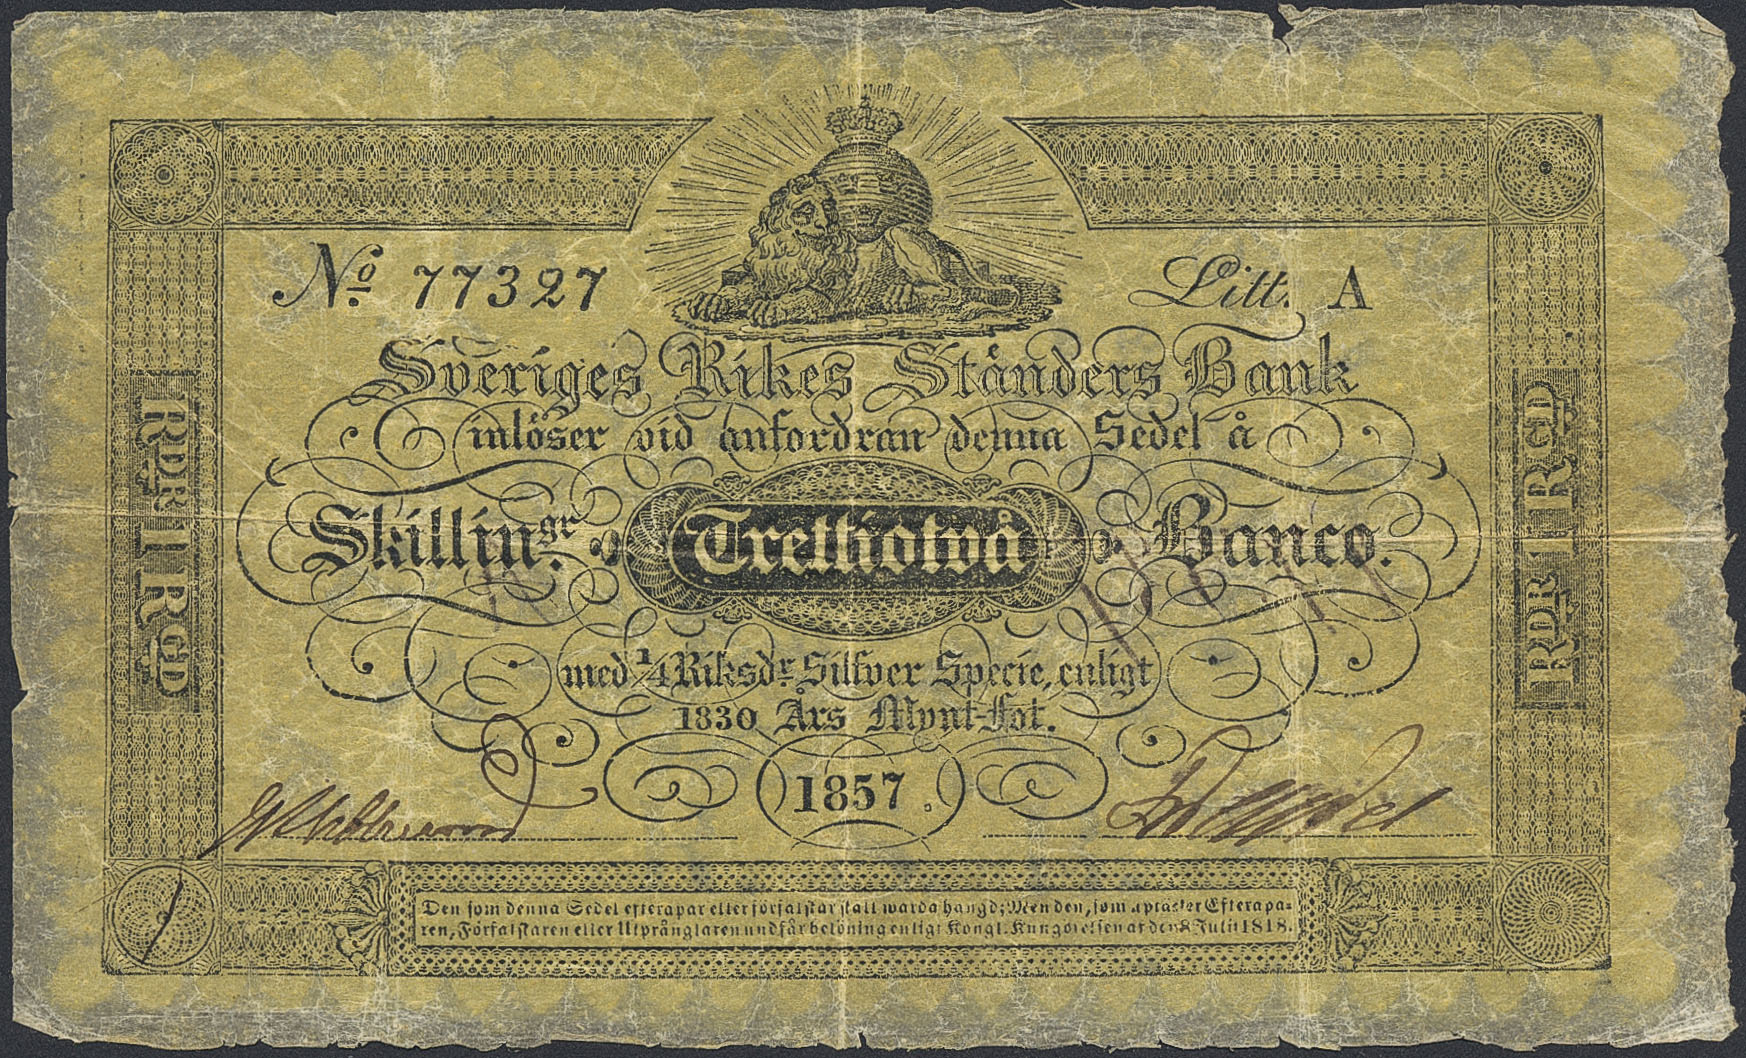 No 77327
Litt. A
Sveriges Rikes Ständers Bank
inlöser vid anfordran denna Sedel å
Skillingr. Trettiotvå Banco.
med 1/4 Riksdr Silfver Specie, enligt
1830 Års Mynt-Fot.
1857.
RDR 1 RGD
RDR 1 RGD
Den som denna Sedel efterapar eller förfalskar skall warda hängd; Men den, som uptäcker Efterapa-
ren, Förfalskaren eller Utprånglaren undfår belöning enligt Kongl. Kungörelsen af den 8 Julii 1818.